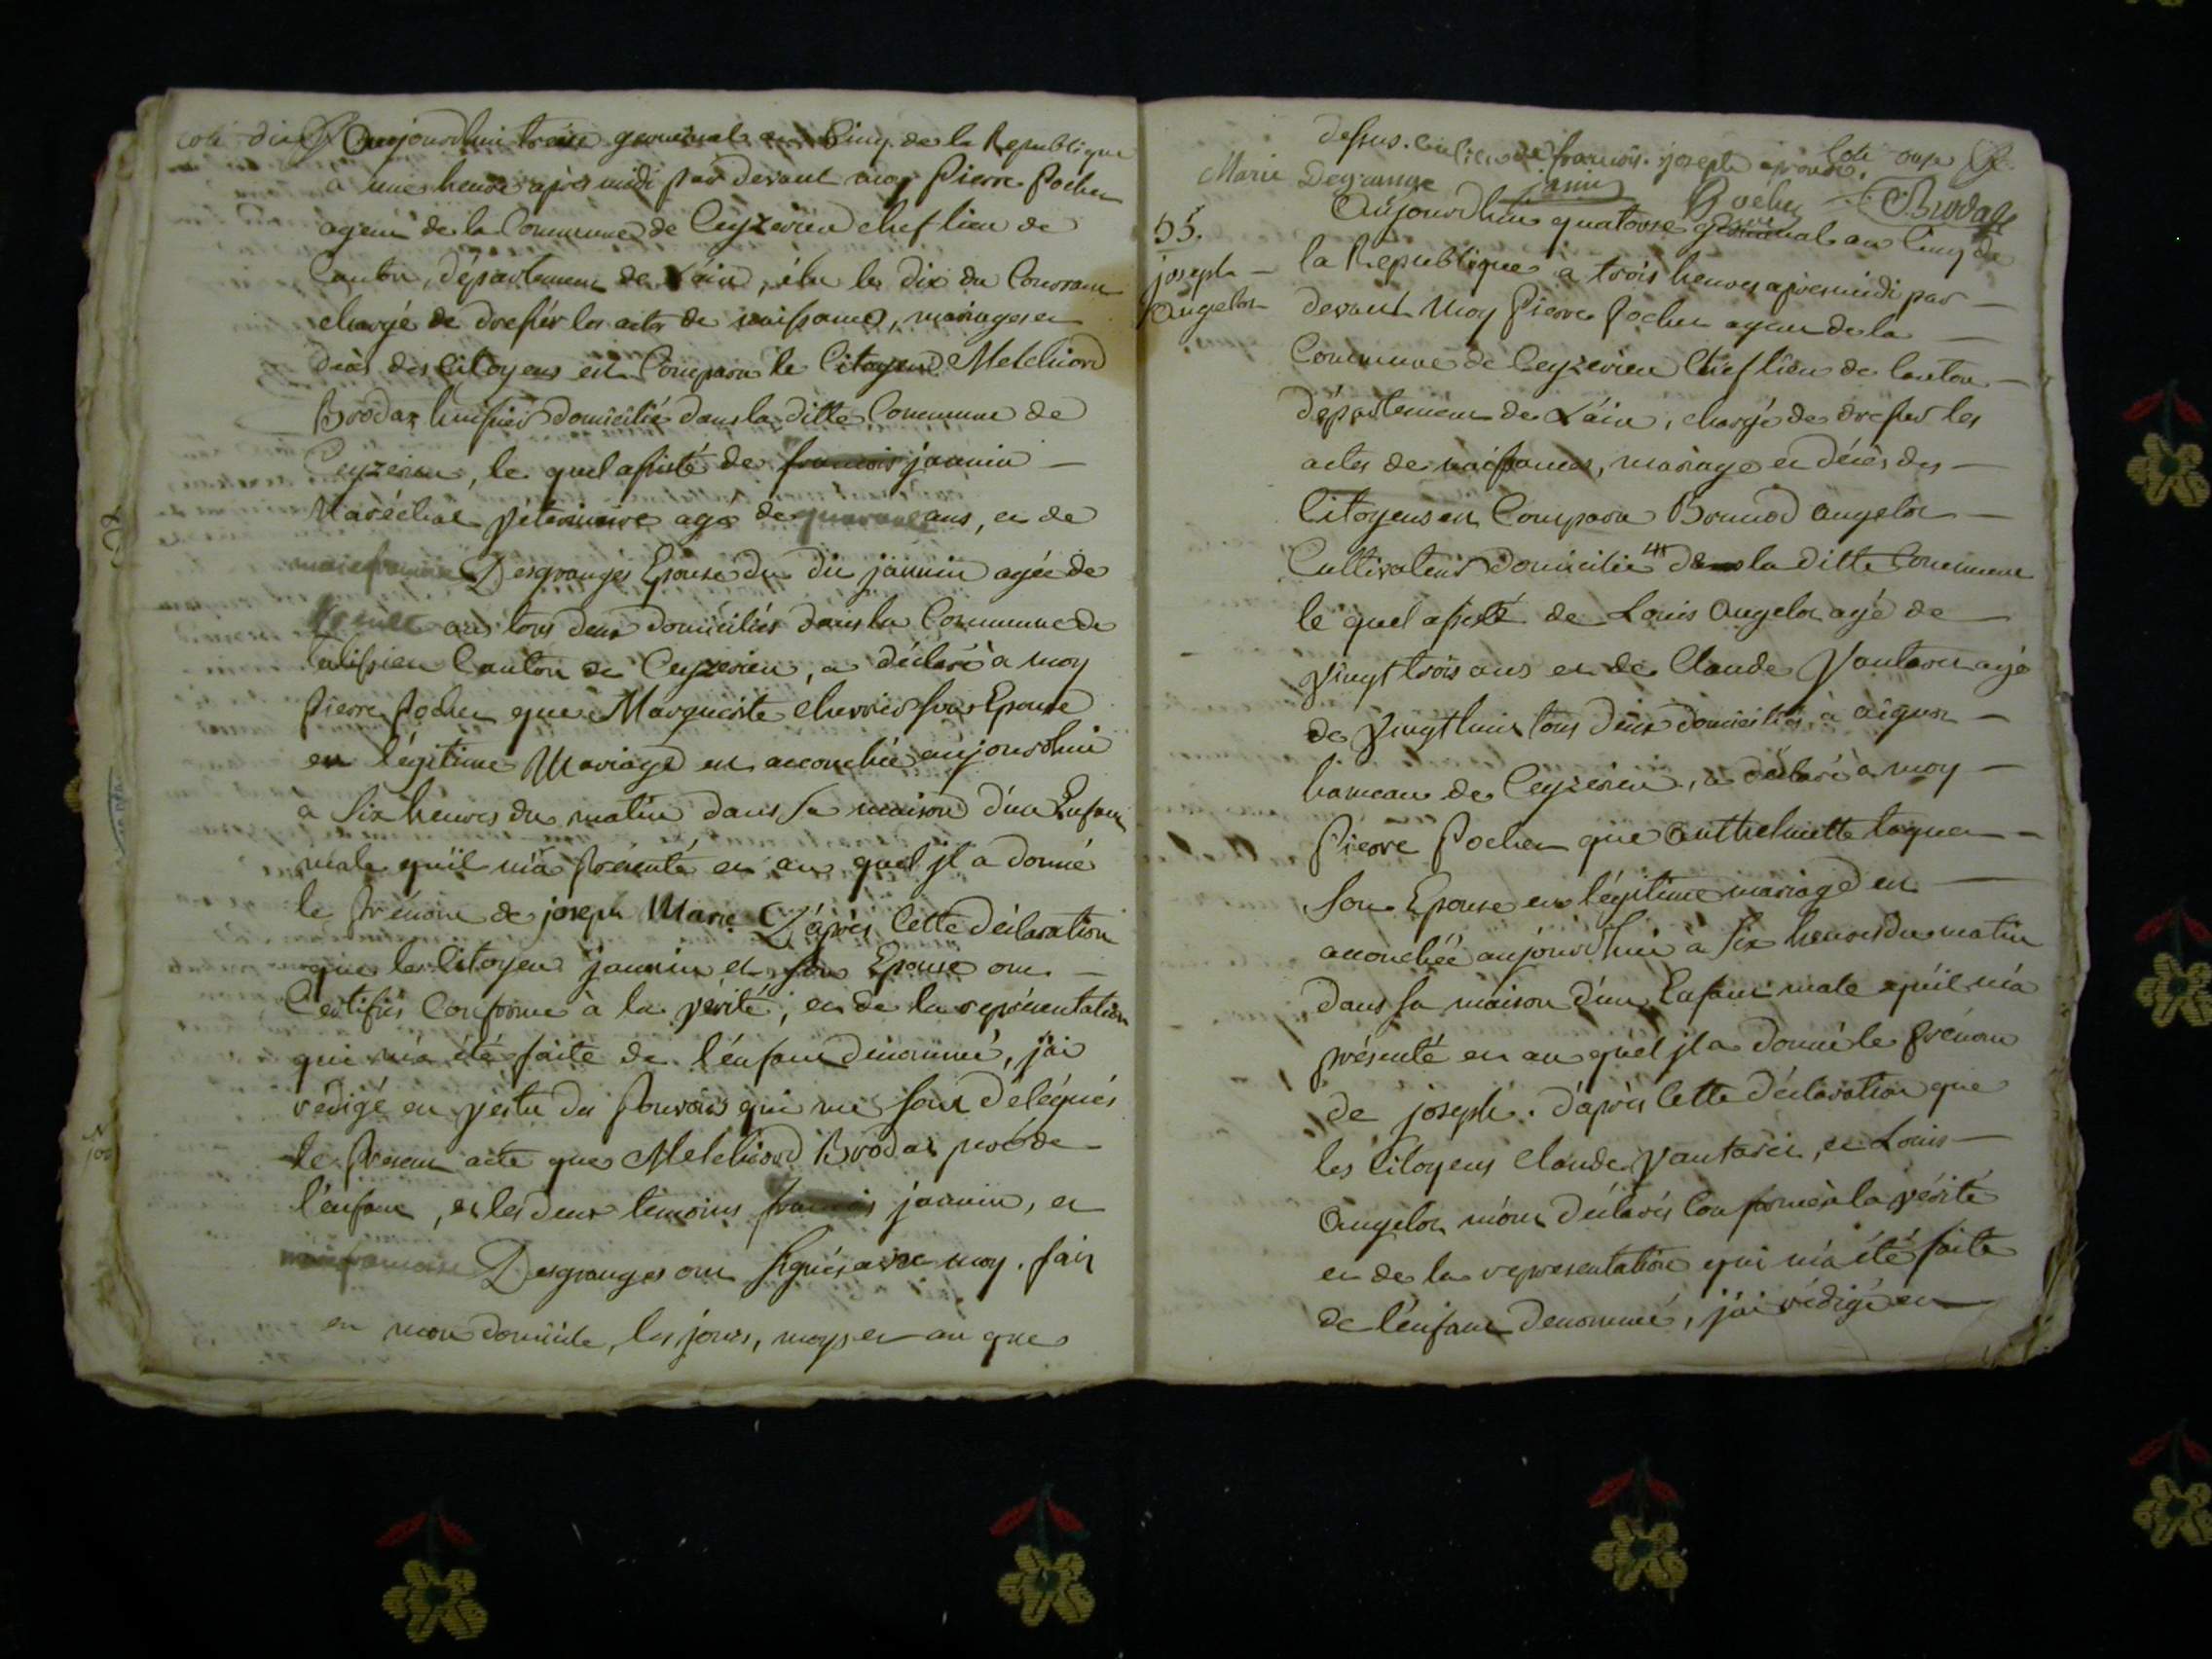 coté dix Aujourdhui treize germinal an Cinq de la Republique
a une heure après midi par devant moy Pierre Pochet
agent de la Commune de Ceyzerieu chef lieu de
Canton, département de L'ain, élu le dix du Courrant
chargé de dresser les actes de naissances, mariages et
decès des Citoyens est Comparu le Citoyen Melchiord
Brodaz huissier domicilié dans la ditte Commune de
Ceyzerieu, le quel assisté de francois jannin —
Maréchal veterinaire agé de quarante ans, et de
Desgranges Epouse du dit jannin agée de
trente ans tous deux domiciliés dans la Commune de
talissieu Canton de Ceyzerieu, a déclaré à moy
Pierre Pochet que Marguerite chevrier son Epouse
en légitime Mariage est accouchée aujourdhui
a Six heures du matin dans sa maison d'un Enfant
male qu'il m'a présenté et au quel jl a donné
le Prénom de joseph Marie. D'après Cette déclaration
que le Citoyen jannin et son Epouse ont —
Certifiés Conforme à la vérité, et de la représentation
qui m'a été faite de l'énfant dénommé, j'ai
rédigé en vertu du Pouvoir qui me sont délégués
le Présent acte que Melchiord Brodaz père de
l'enfant, et les deux temoins francois jannin, et
Desgranges ont signés avec moy. fait
en mon domicile, les jours, moys et an que
dessus. au lieu de francois. joseph aprouvé. Coté onze
Marie Degrange janin Pochet Brodaz
55.
joseph —
Angelot
Aujourdhui quatorze germinal an Cinq de
la Republique a trois heures après midi par —
devant Moy Pierre Pochet agent de la —
Commune de Ceyzerieu Chef lieu de Canton —
département de L'ain, chargé de dresser les
actes de naissances, mariage et décès des —
Citoyens est Comparu Brunod Angelot —
Cultivateur domicilié dans la ditte Commune
le quel assisté de Louis Angelot agé de —
vingt trois ans et de Claude Vantaret agé
de vingt huit tous deux domiciliés à aignoz —
hameau de Ceyzerieu, a déclaré a moy —
Pierre Pochet que Anthelmette —
son Epouse en légitime mariage est —
accouchéé aujourdhui à Six heures du matin
dans sa maison d'un Enfant male qu'il m'a
présenté et au quel jl a donné le Prénom
de joseph. d'après Cette déclaration que
les Citoyens Claude Vantaret, et Louis —
Angelot m'ont déclarés Conforme à la vérité
et de la representation qui m'a été faite
de l'énfant denommé, j'ai rédigé en —